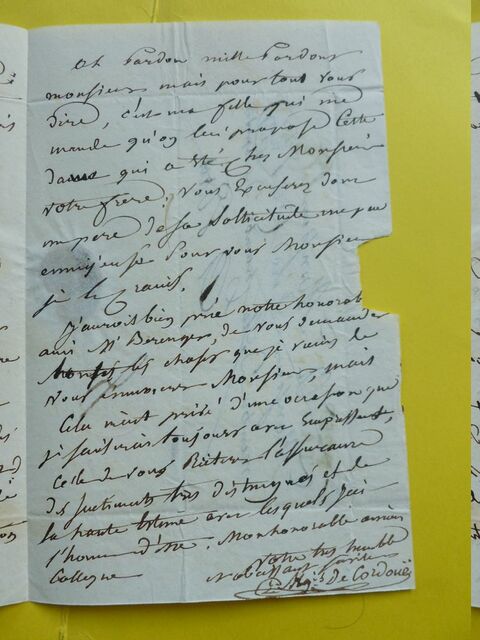 Ah pardon mille pardons
monsieur mais pour tout vous
dire, c'est ma fille qui me
mande qu'on lui propose cette
dame qui a été chez Monsieur
votre frère. Vous excuserez donc
un pere de sa sollicitude un peu
ennuyeuse pour vous Monsieur
je le crains.
J'aurois bien prié notre honorable
ami Mr Berenger, de vous demander
les choses que je viens de
vous Monsieur, mais
cela m'eut privé d'une occasion que
je saisirais toujours avec empressement,
celle de vous réiterer l'assurance
des sentiments très distingués et de
la haute estime avec lesquels j'ai
l'honneur d'être, Mon honorable ancien
Collegue
votre très humble
et obéissant
Mis de Cordoüe